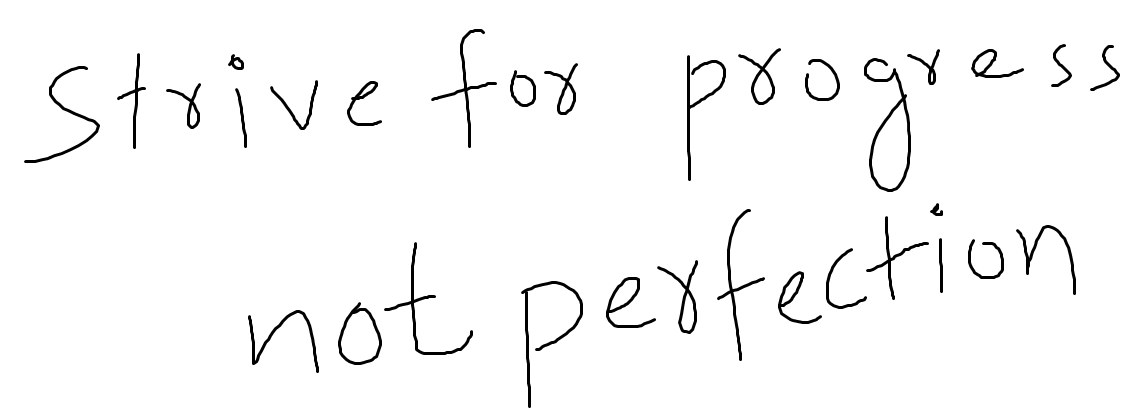 Strive for progress
not perfection